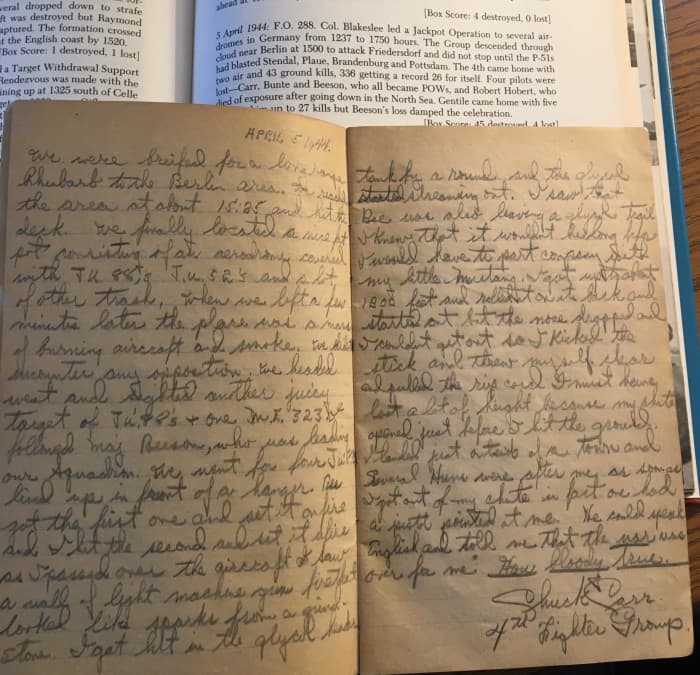 veral dropped down to strafe
ft was destroyed but Raymond
aptured. The formation crossed
t the English coast by 1520.
Box Score: 1 destroyed, 1 lost]
a Target Withdrawal Support
Rendezvous was made with the
ining up at 1325 south of Celle
[Box Score: 4 destroyed, 0 lost]
5 April 1944: F.O. 288. Col. Blakeslee led a Jackpot Operation to several air-
dromes in Germany from 1237 to 1750 hours. The Group descended through
cloud near Berlin at 1500 to attack Friedersdorf and did not stop until the P-51s
had blasted Stendal, Plaue, Brandenburg and Pottsdam. The 4th came home with
two air and 43 ground kills, 336 getting a record 26 for itself. Four pilots were
lost—Carr, Bunte and Beeson, who all became POWs, and Robert Hobert, who
died of exposure after going down in the North Sea. Gentile came home with five
him up to 27 kills but Beeson's loss damped the celebration.
[Box Score: 45 destroyed, 4 lost]
APRIL 5 1944.
We were breifed for a long range
Rhubarb to the Berlin area. We
the area at about 15:25 and hit the
deck. We finally located a nice jet
pot consisting of an aerodrome covered
with JU 88's, J.U. 52's and a lot
of other trash. When we left a few
minutes later the place was a mass
of burning aircraft and smoke. We didn't
encounter any oppositon. We headed
west and sighted another juicy
target of Ju. 88's + one M.E. 323. We
followed maj Beeson, who was leading
our Squadron. We went for four Ju 88's
lined up in front of a hanger. Bee
got the first one and set it on fire
and I hit the second and set it afire
as I passed over the aircraft I saw
a wall of light machine gun fire that
looked like sparks from a grind-
stone. I got hit in the glycol header
tank by a round and the glycol
started streaming out. I saw that
Bee was also leaving a glycol trail
I knew that it wouldnt be long before
I would have to part company with
my little Mustang. I got up to about
1800 feet and rolled it on its back and
started out but the nose dropped and
I couldnt get out so I kicked the
stick and threw myself clear
and pulled the rip cord I must have
lost a lot of height because my chute
opened just before I hit the ground.
I landed just outside of a town and
Several Huns were after me as soon as
I got out of my chute in fact one had
a pistol pointed at me. He could speak
English and told me that the war was
over for me. How bloody true.
Chuck Carr.
4TH Fighter Group.